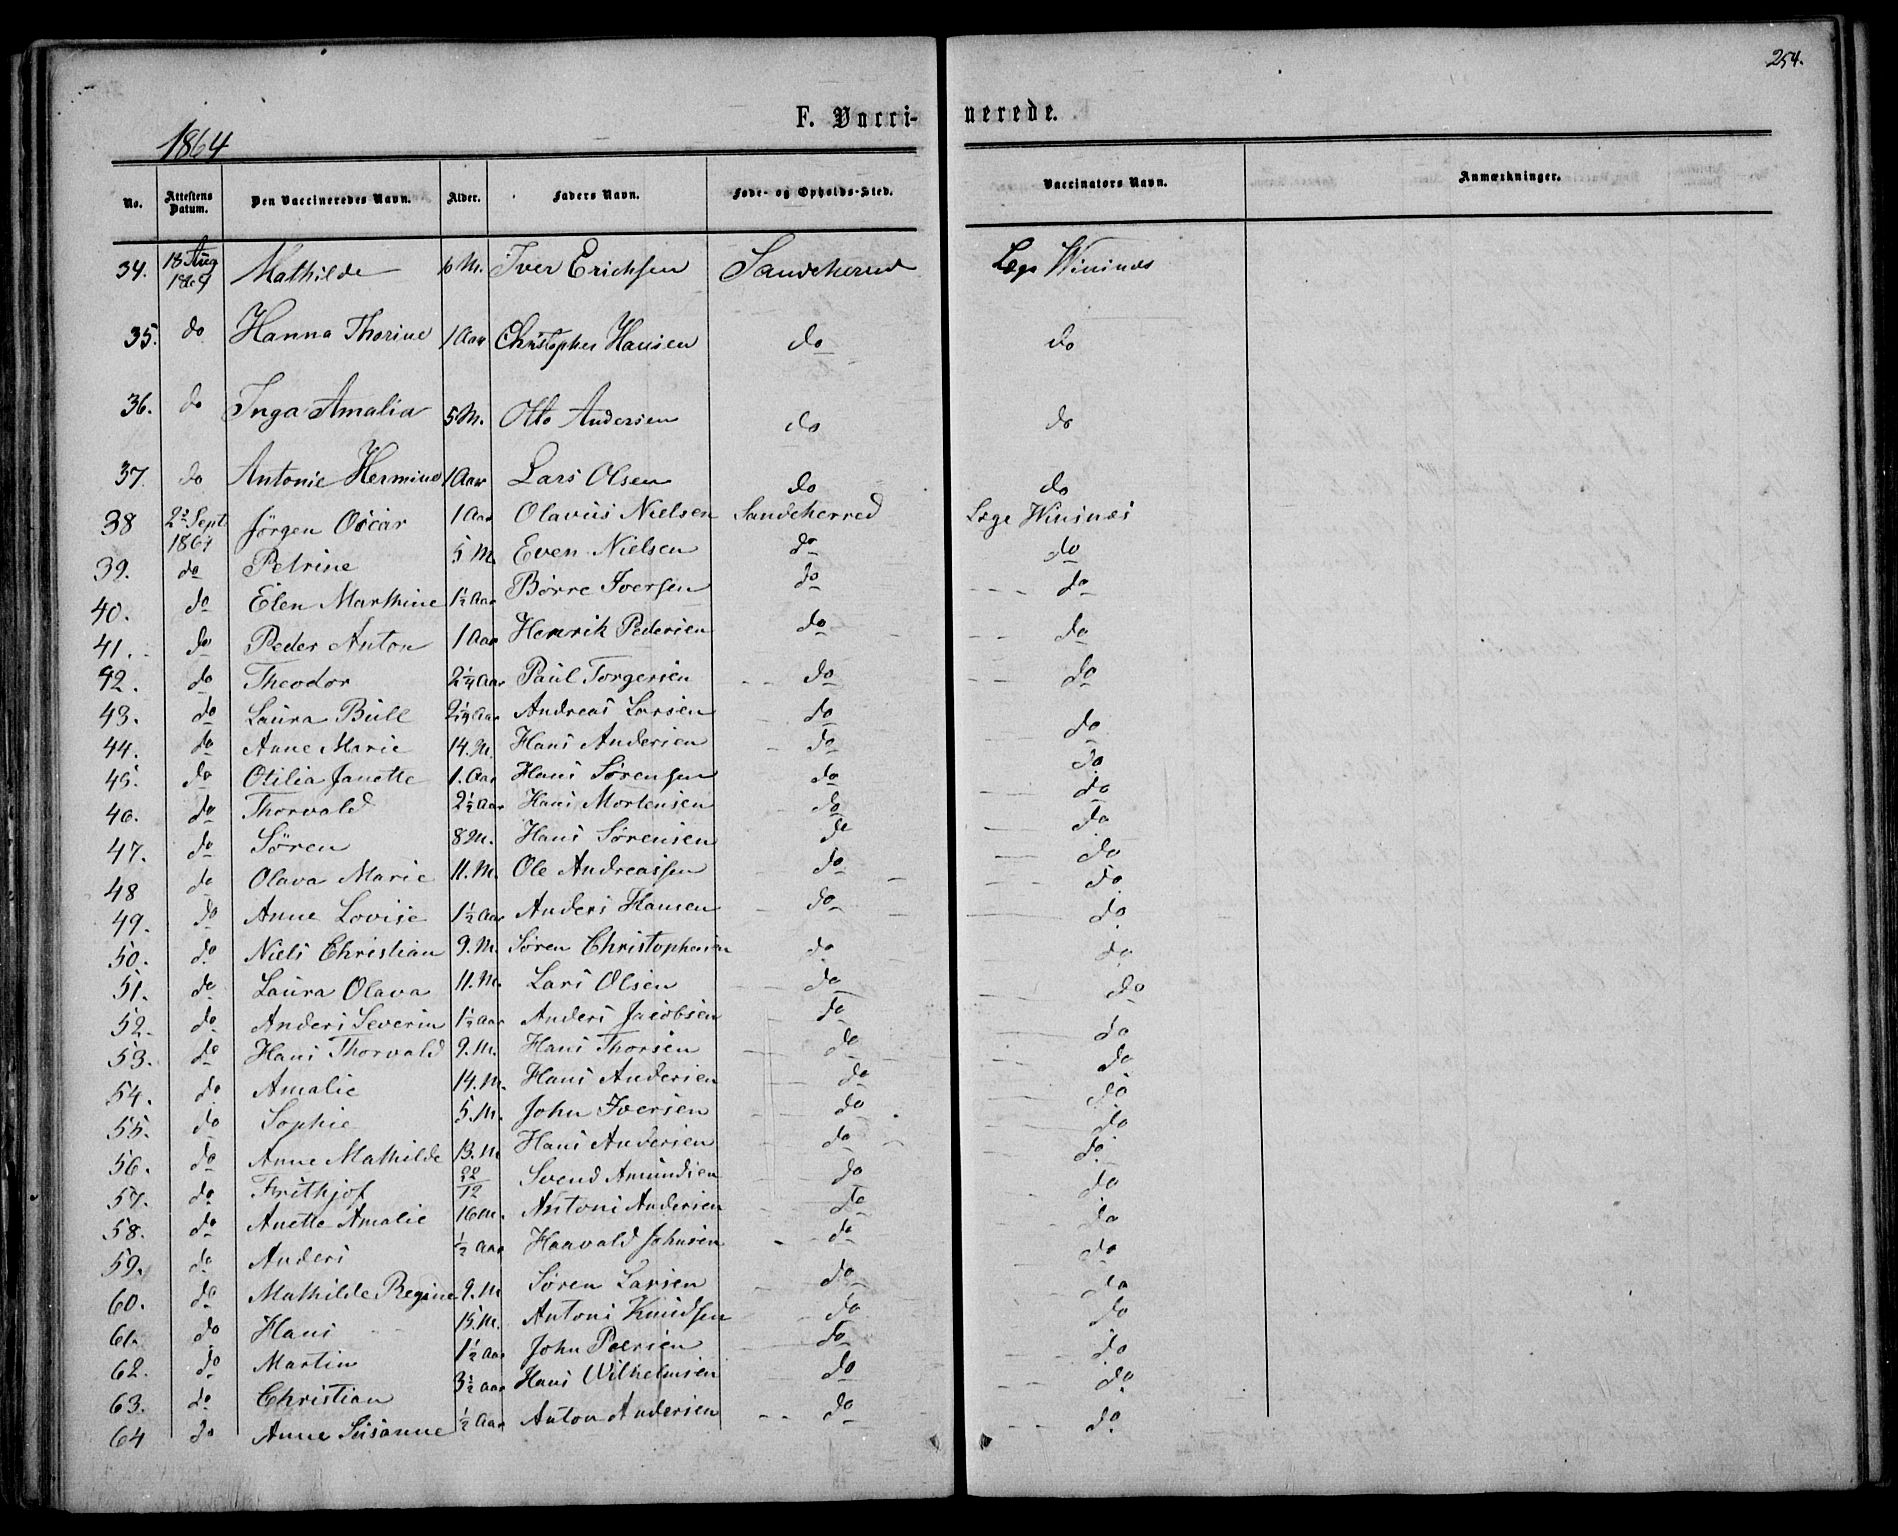 254.
F. Vacci- nerede.
1864
No. Attestens Datum. Den Vaccineredes Navn. Alder. Faders Navn. Føde- og Opholds-Sted. Vaccinators Navn. Anmærkninger.
34. 18 Aug 1864 Mathilde 6 M. Iver Erichsen Sandeherred Læge
35. do Hanna Thorine 1 Aar Christopher Hansen do do
36. do Inga Amalia 5 M. Otto Andersen do do
37. do Antonie Hermine 1 Aar Lars Olsen do do
38 2 Sept 1864 Jörgen Oscar 1 Aar Olavus Nielsen Sandeherred Læge
39. do Petrine 5 M. Even Nielsen do do
40. do Elen Marthine 1½ Aar Børre Iversen do do
41. do Peder Anton 1 Aar Henrik Pedersen do do
42. do Theodor 2¼ Aar Paul Torgersen do do
43. do Laura Bull 2¼ Aar Andreas Larsen do do
44. do Anne Marie 14. M Hans Andersen do do
45. do Otilia Janette 1. Aar Hans Sørensen do do
46. do Thorvald 2½ Aar Hans Mortensen do do
47. do Søren 8 M. Hans Sørensen do do
48 do Olava Marie 11. M. Ole Andreassen do do
49. do Anne Lovise 1½ Aar Anders Hansen do do
50. do Niels Christian 9. M. Søren Christophersen do do
51. do Laura Olava 11. M. Lars Olsen do do
52. do Anders Severin 1½ Aar Anders Jacobsen do do
53. do Hans Thorvald 9. M. Hans Thorsen do do
54. do Amalie 14. M. Hans Andersen do do
55. do Sophie 5. M. John Iversen do do
56. do Anne Mathilde 13. M Hans Andersen do do
57. do Frithjof 22/12 Svend Amundsen do do
58. do Anette Amalie 16 M. Antoni Andersen do do
59. do Anders ½ Aar Haavald Johnsen do do
60. do Mathilde Regine 9. M Søren Larsen do do
61. do Hans 15. M. Antoni Knudsen do do
62. do Martin 1½ Aar John Peersen do do
63. do Christian 3½ Aar Hans Wilhelmsen do do
64 do Anne Susanne ½ Aar Anton Andersen do do.